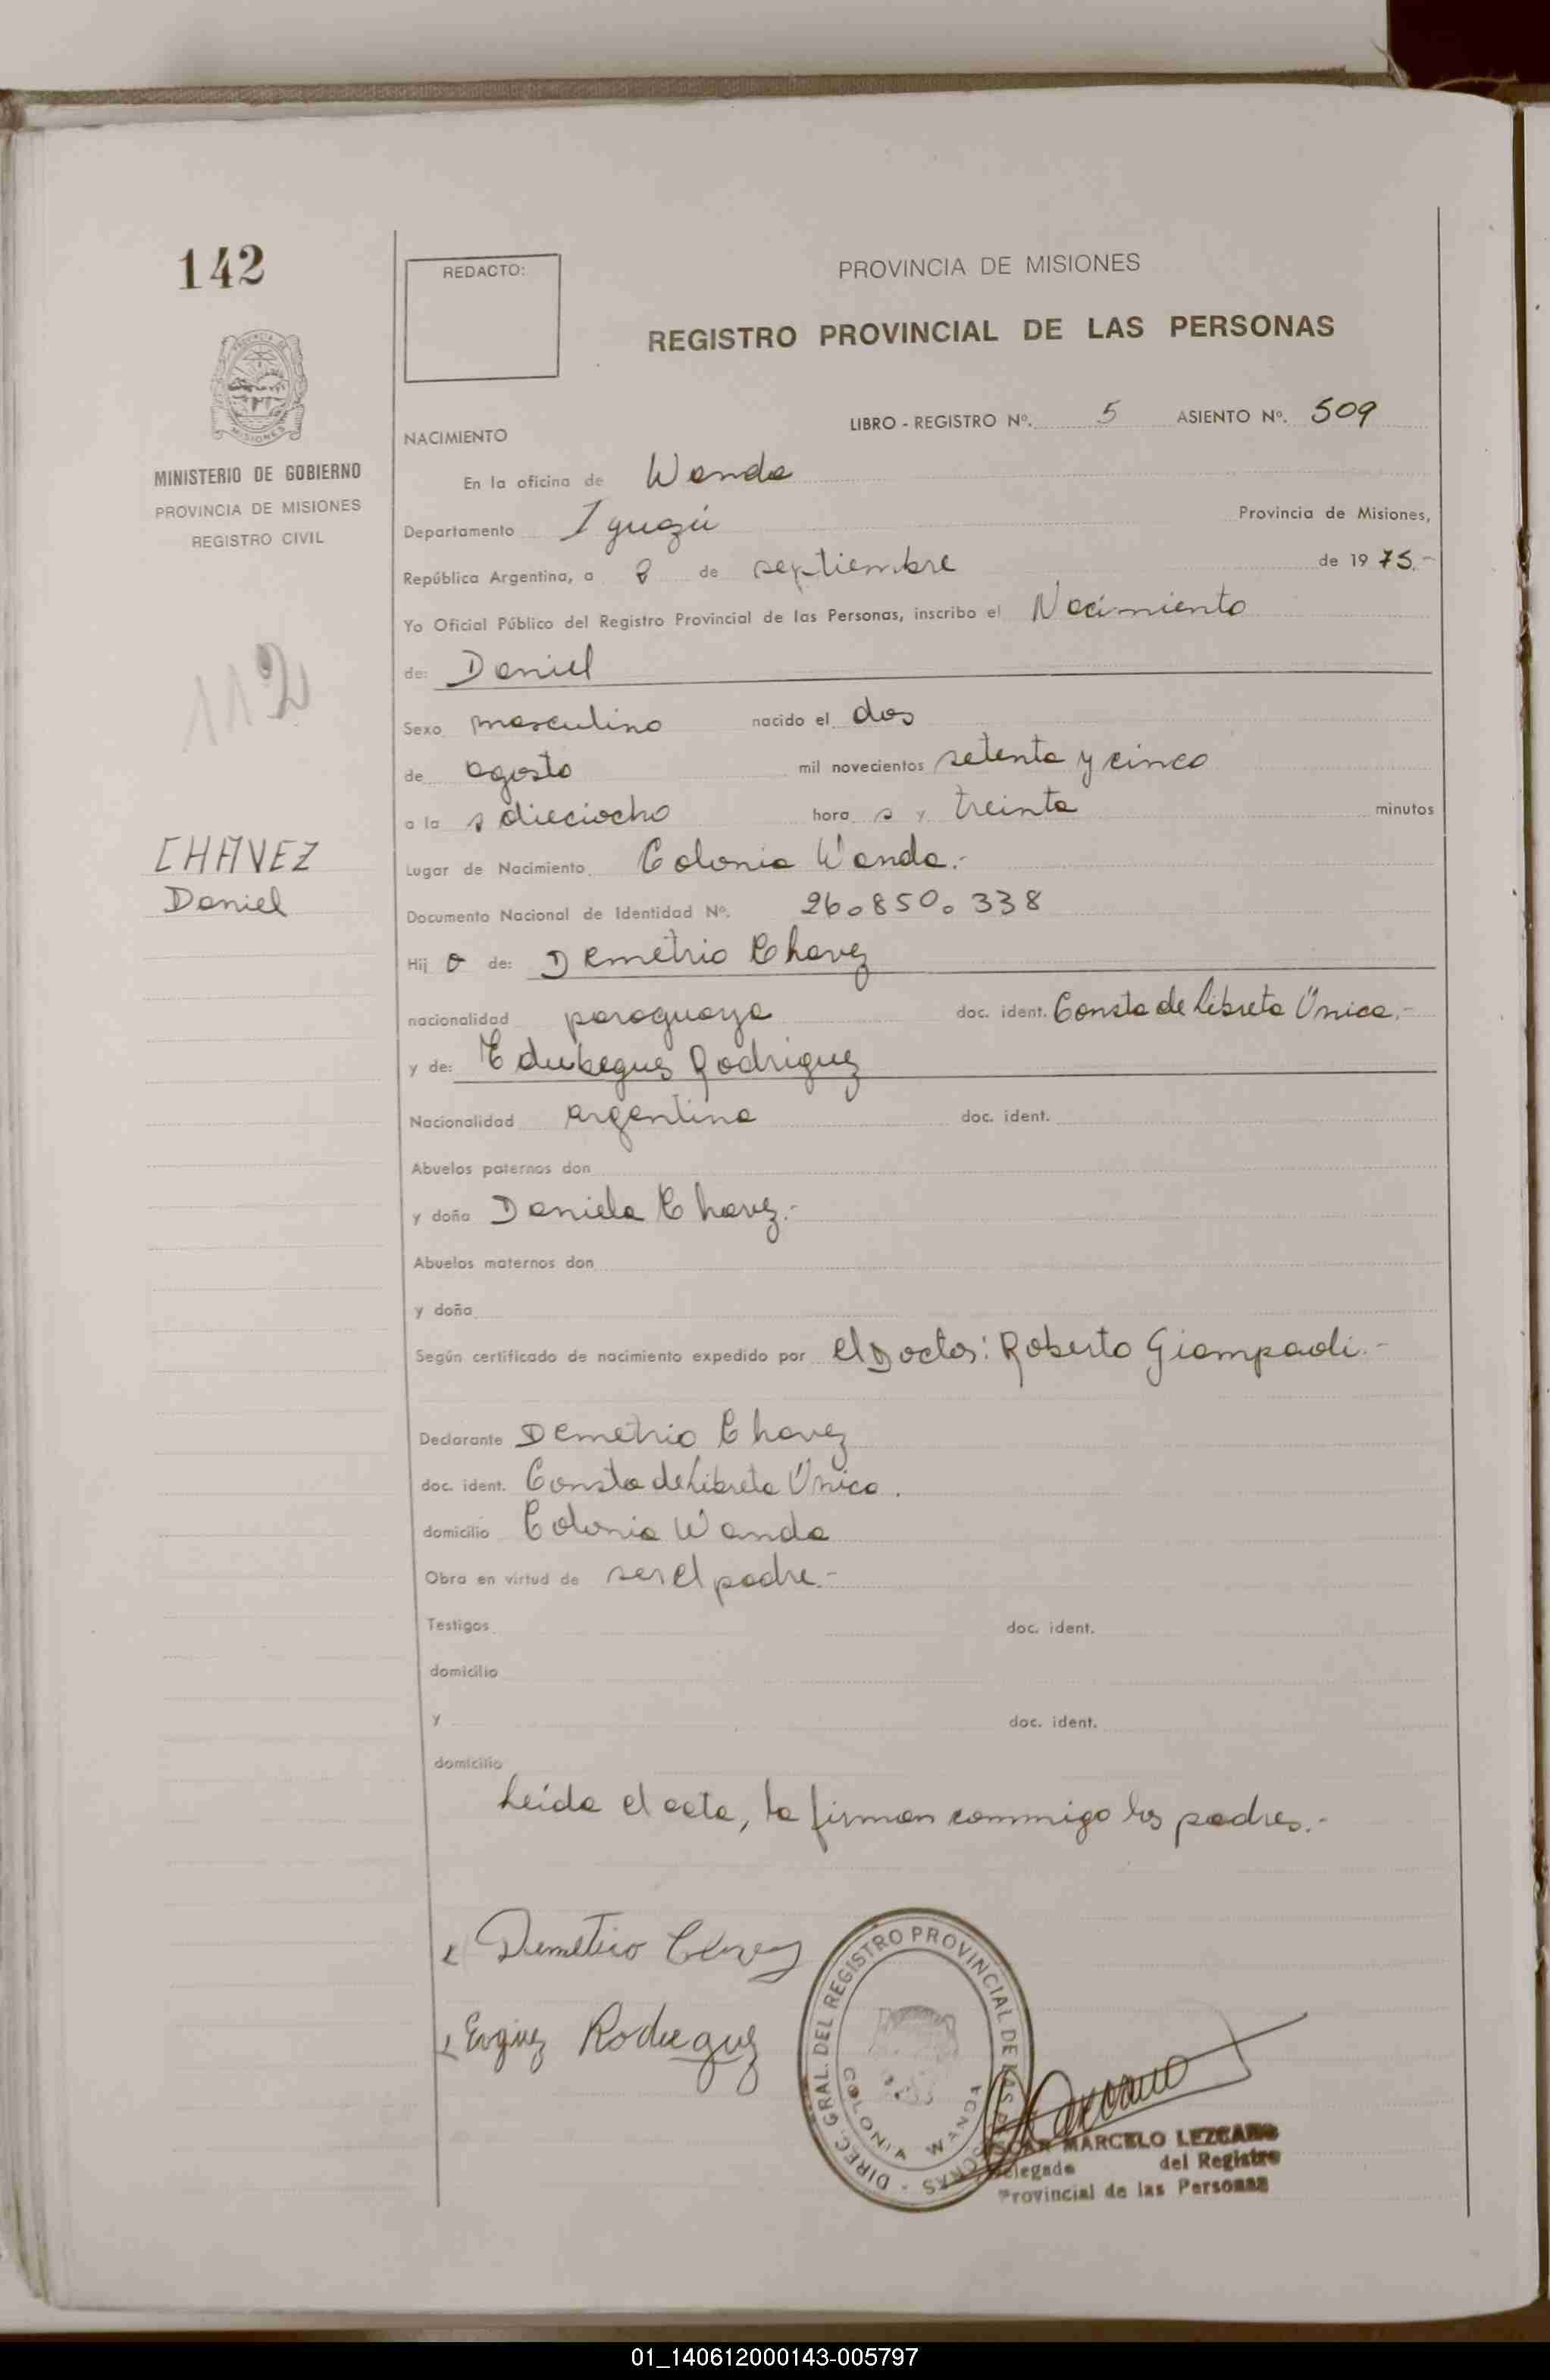 142
REDACTO:
PROVINCIA DE MISIONES
REGISTRO PROVINCIAL DE LAS PERSONAS
MISIONES
MINISTERIO DE GOBIERNO
PROVINCIA DE MISIONES
REGISTRO CIVIL
112
CHAVEZ
Daniel
NACIMIENTO
LIBRO - REGISTRO Nº. 5 ASIENTO Nº. 509
En la oficina de Wanda
Departamento Iguazú Provincia de Misiones,
República Argentina, a 8 de septiembre de 1975.-
Yo Oficial Público del Registro Provincial de las Personas, inscribo el Nacimiento
de: Daniel
Sexo masculino nacido el dos
de agosto mil novecientos setenta y cinco
a la s dieciocho hora s y treinta minutos
Lugar de Nacimiento Colonia Wanda.-
Documento Nacional de Identidad Nº. 26.850.338
Hij o de: Demetrio Chavez
nacionalidad paraguaya doc. ident. Consta de Libreta Única.-
y de: Edubegues Rodriguez
Nacionalidad argentina doc. ident.
Abuelos paternos don
y doña Daniela Chavez.-
Abuelos maternos don
y doña
Según certificado de nacimiento expedido por el Doctor: Roberto Giampaoli.-
Declarante Demetrio Chavez
doc. ident. Consta de Libreta Única.
domicilio Colonia Wanda
Obra en virtud de ser el padre.-
Testigos doc. ident.
domicilio
y doc. ident.
domicilio
Leida el acta, la firman conmigo los padres.-
Demetrio Chavez
Rodriguez
DIREC. GRAL. DEL REGISTRO PROVINCIAL DE LAS PERSONAS
COLONIA WANDA
OSCAR MARCELO LEZCANO
Delegado del Registro
Provincial de las Personas
01_140612000143-005797